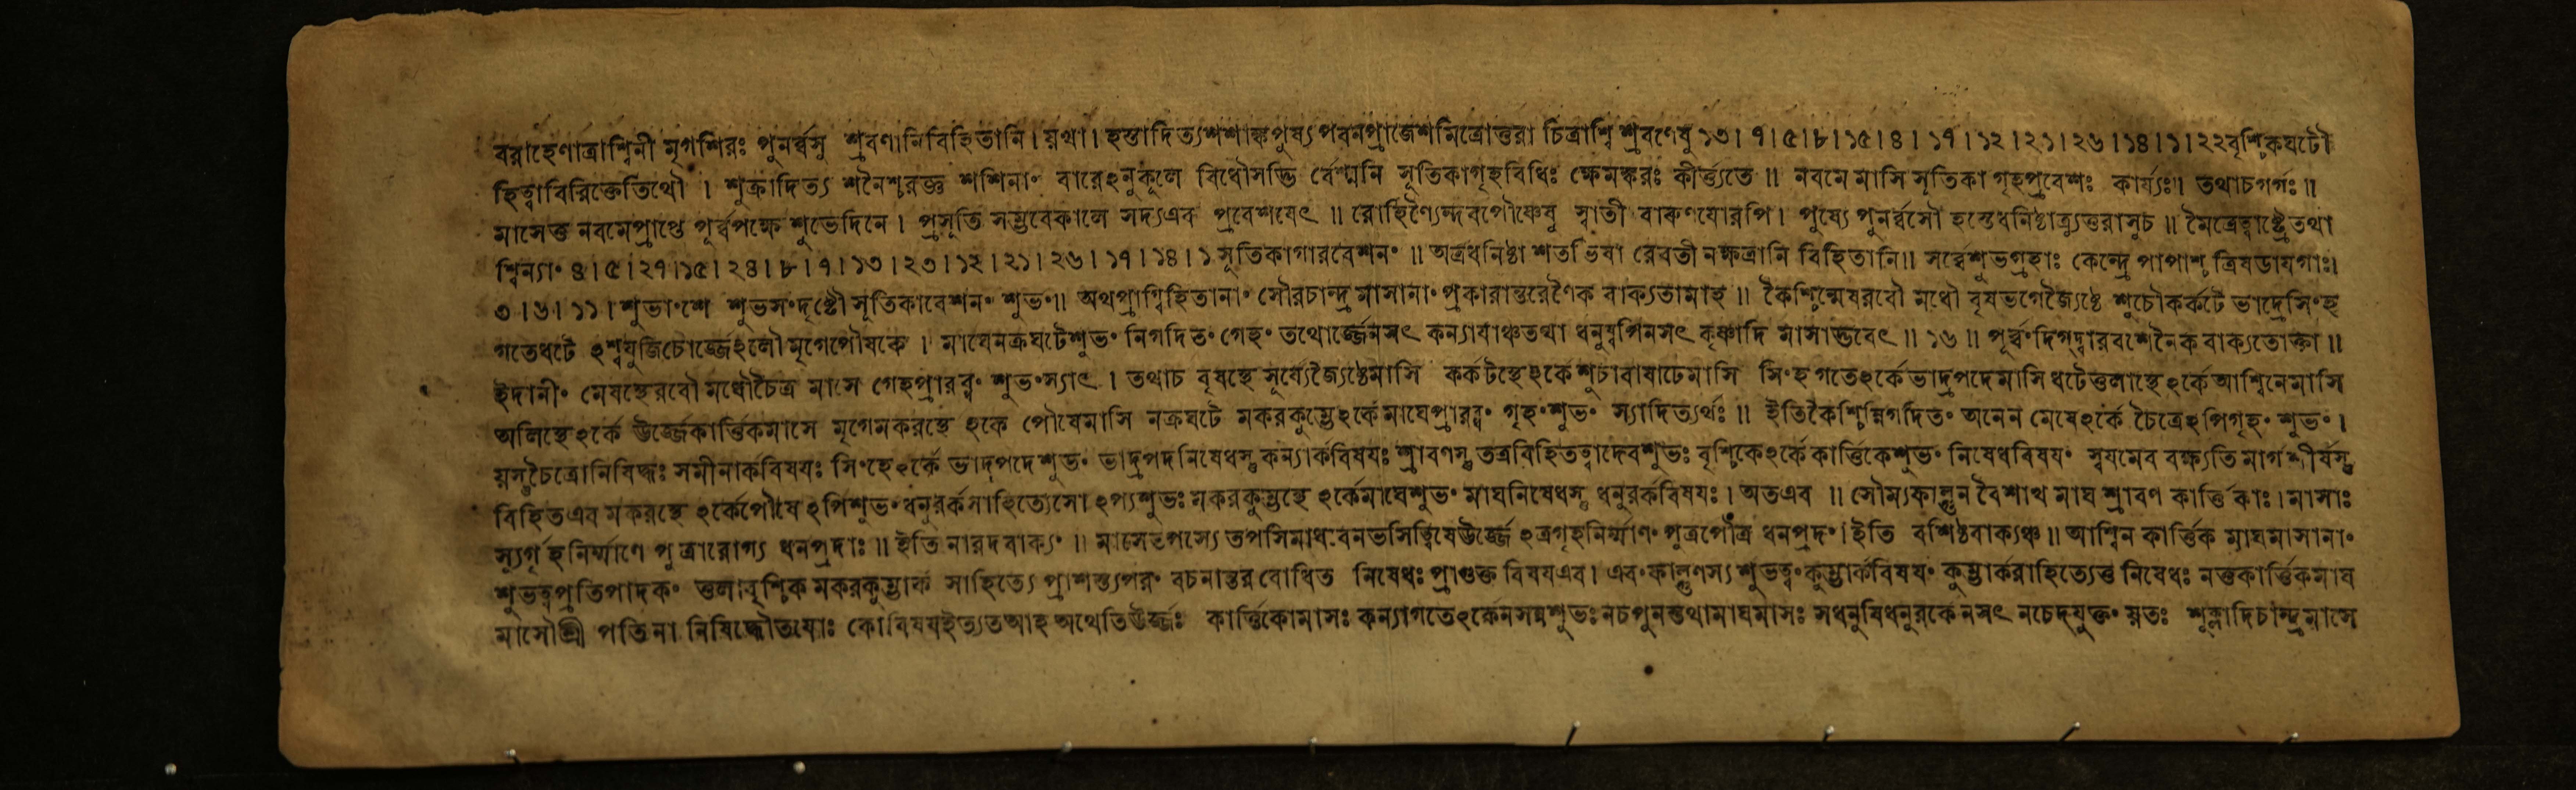 বরাহেণাত্রাশ্বিনী মৃগশিরঃ পুনর্ব্বসু শ্রবণানিবিহিতানি। য়থা। হস্তাদিত্যশশাঙ্কপুষ্যপবনপ্রাজেশমিত্রোত্তরা চিত্রাশ্বি শ্রবণেষু ১৩। ৭। ৫। ৮। ১৫। ৪। ১৭। ১২। ২১। ২৬। ১৪। ১। ২২ বৃশ্চিকঘটৌ
হিত্বাবিরিক্তেতিথৌ। শুক্রাদিত্য শনৈশ্চরজ্ঞ শশিনাং বারেঽনুকূলে বিধৌসদ্ভি র্বেশ্মনি সূতিকাগৃহবিধিঃ ক্ষেমঙ্করঃ কীর্ত্ত্যতে॥ নবমে মাসি সূতিকা গৃহপ্রবেশঃ কার্য্যঃ॥ তথাচগর্গঃ॥
মাসেত্তু নবমেপ্রাপ্তে পূর্ব্বপক্ষে শুভেদিনে। প্রসূতি সম্ভবেকালে সদ্যএব প্রবেশযেৎ॥ রোহিণ্যৈন্দবপৌষ্ণেষু স্বাতী বারুণযোরপি। পুষ্যে পুনর্ব্বসৌ হস্তেধনিষ্ঠাত্র্যুত্তরাসুচ॥ মৈত্রেত্বাষ্ট্রেতথা
শ্বিন্যাং ৪। ৫। ২৭। ১৫। ২৪। ৮। ৭। ১৩। ২৩। ১২। ২১। ২৬। ১৭। ১৪। ১ সূতিকাগারবেশনং॥ অত্রধনিষ্ঠা শতভিষা রেবতী নক্ষত্রানি বিহিতানি॥ সর্ব্বেশুভগ্রহাঃ কেন্দ্রে পাপাশ্চ ত্রিষডাযগাঃ।
৩। ৬। ১১। শুভাংশে শুভসংদৃষ্টৌ সূতিকাবেশনং শুভং॥ অথপ্রাগ্বিহিতানাং সৌরচান্দ্র মাসানাং প্রকারান্তরেণৈক বাক্যতামাহ॥ কৈশ্চিন্মেষরবৌ মধৌ বৃষভগেজ্যৈষ্ঠে শুচৌকর্কটে ভাদ্রেসিংহ
গতেধটে ঽশ্বযুজিচোর্জ্জেঽলৌ মৃগেপৌষকে। মাঘেনক্রঘটেশুভং নিগদিতং গেহং তথোর্জ্জেনসৎ কন্যাযাঞ্চতথা ধনুষ্যপিনসৎ কৃষ্ণাদি মাসাদ্ভবেৎ॥ ১৬॥ পূর্ব্বংদিগ্দ্বারবশেনৈক বাক্যতোক্তা॥
ইদানীং মেষস্থেরবৌ মধৌচৈত্র মাসে গেহপ্রারব্ধং শুভংস্যাৎ। তথাচ বৃষস্থে সূর্য্যেজ্যৈষ্ঠেমাসি কর্কটস্থেঽর্কেশুচাবাষাঢেমাসি সিংহ গতেঽর্কেভাদ্রপদেমাসি ধটেত্তুলাস্থেঽর্কেআশ্বিনেমাসি
অলিস্থেঽর্কে ঊর্জ্জেকার্ত্তিকমাসে মৃগেমকরস্থে ঽকে পৌষেমাসি নক্রঘটে মকরকুম্ভেঽর্কেমাঘেপ্রারব্ধং গৃহংশুভং স্যাদিত্যর্থঃ॥ ইতিকৈশ্চিন্নিগদিতং অনেন মেষেঽর্কে চৈত্রেঽপিগৃহং শুভং।
য়স্তুচৈত্রোনিষিদ্ধঃ সমীনার্কবিষযঃ সিংহেঽর্কে ভাদ্রপদেশুভং ভাদ্রপদনিষেধস্তু কন্যার্কবিষযঃ শ্রাবণস্তু তত্রবিহিতত্বাদেবশুভঃ বৃশ্চিকেঽর্কেকার্ত্তিকেশুভং নিষেধবিষযং স্বযমেব বক্ষ্যতি মার্গশীর্ষস্তু
বিহিতএব মকরস্থে ঽর্কেপৌষেঽপিশুভংধনুরর্কসাহিত্যেসোঽপ্যশুভঃ মকরকুম্ভস্থে ঽর্কেমাঘেশুভং মাঘনিষেধস্তু ধনুরর্কবিষযঃ। অতএব॥ সৌম্যফাল্গুন বৈশাখ মাঘ শ্রাবণ কার্ত্তিকাঃ। মাসাঃ
স্যুর্গৃহনির্ম্মাণে পুত্রারোগ্য ধনপ্রদাঃ॥ ইতি নারদবাক্যং॥ মাসেতপস্যে তপসিমাধবেনভসিত্বিষেঊর্জ্জে ঽত্রগৃহনির্ম্মাণং পুত্রপৌত্র ধনপ্রদং। ইতি বশিষ্ঠবাক্যঞ্চ॥ আশ্বিন কার্ত্তিক মাঘমাসানাং
শুভত্বপ্রতিপাদকং ত্তুলাবৃশ্চিক মকরকুম্ভার্ক সাহিত্যে প্রাশস্ত্যপরং বচনান্তরবোধিত নিষেধঃ প্রাগুক্ত বিষযএব। এবংফাল্গুণস্য শুভত্বং কুম্ভার্কবিষযং কুম্ভার্করাহিত্যেত্তু নিষেধঃ নত্তুকার্ত্তিকমাঘ
মাসৌশ্রী পতিনা নিষিদ্ধৌতযোঃ কোবিষযইত্যতআহ অথেতিঊর্জ্জঃ কার্ত্তিকোমাসঃ কন্যাগতেঽর্কেনসন্নশুভঃ নচপুনস্তথামাঘমাসঃ সধনুষিধনুরর্কেনসৎ নচেদ্যুক্তং য়তঃ শুক্লাদিচান্দ্রমাসে